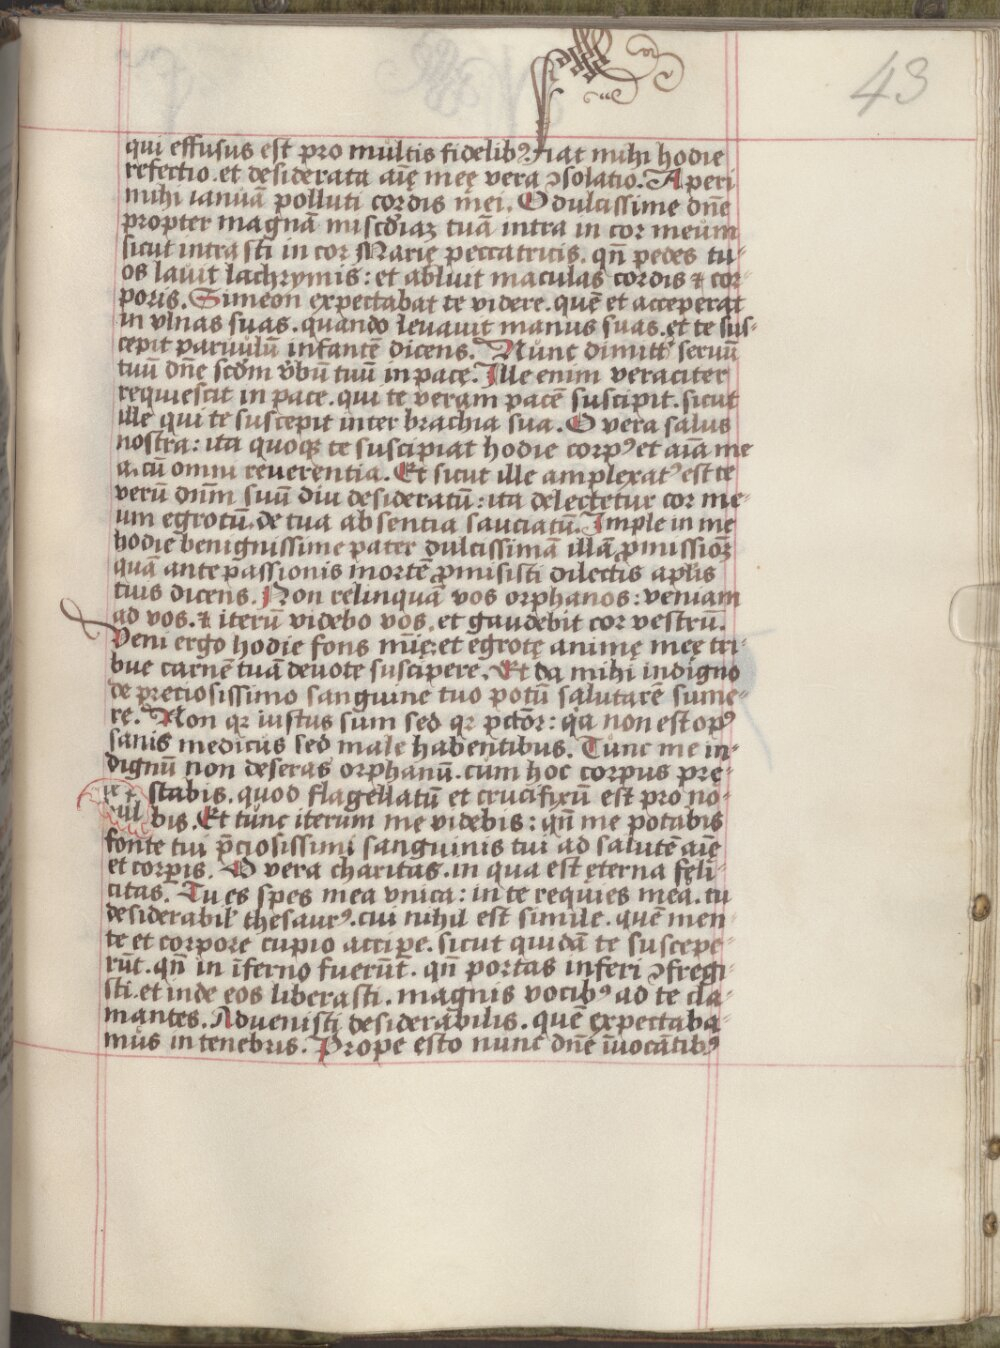 43
qui effusus est pro multis fidelibꝰ. Fiat mihi hodie
refectio. et desiderata aīę meę vera ꝯsolatio. Aperi
mihi ianuā polluti cordis mei. O dulcissime dn̄e
propter magnā misc̄diaꝫ tuā intra in cor meum
sicut intrasti in cor Marię peccatricis. qn̄ pedes tu-
os lauit lachrymis: et abluit maculas cordis & cor-
poris. Simeon expectabat te videre. quē et acceperat
in vlnas suas. quando leuauit manus suas. et te sus-
cepit paruulū infantē dicens. Nunc dimitt seruū
tuū dn̄e scd̄m v̄bū tuū in pace. Ille enim veraciter
requiescit in pace. qui te veram pacē suscipit. sicut
ille qui te suscepit inter brachia sua. O vera salus
nostra: ita quoqꝫ te suscipiat hodie corpꝰ et aīa me
a. cū omni reuerentia. Et sicut ille amplexatꝰ est te
verū dn̄m suū diu desideratū: ita delectetur cor me-
um egrotū. de tua absentia sauciatū. Imple in me
hodie benignissime pater dulcissimā illā ꝓmissiōꝫ
quā ante passionis mortē ꝓmisisti dilectis ap̄lis
tuis dicens. Non relinquā vos orphanos: veniam
ad vos. & iterū videbo vos. et gaudebit cor vestrū.
Veni ergo hodie fons mīę: et egrotę animę meę tri-
bue carnē tuā deuote suscipere. Et da mihi indigno
de preciosissimo sanguine tuo potū salutarē sume-
re. Non qr iustus sum sed qr pctōr: qa non est opꝰ
sanis medicus sed male habentibus. Tunc me in-
dignū non deseras orphanū. cum hoc corpus pre-
stabis. quod flagellatū et crucifixū est pro no-
bis. Et tunc iterum me videbis: qn̄ me potabis
fonte tui p̄ciosissimi sanguinis tui ad salutē aīę
et corpis. O vera charitas. in qua est eterna feli-
citas. Tu es spes mea vnica: in te requies mea. tu
desiderabil' thesaurꝰ. cui nihil est simile. quē men-
te et corpore cupio accipe. sicut quidā te suscepe-
rūt. qn̄ in īferno fuerūt. qn̄ portas inferi ꝯfregi-
sti. et inde eos liberasti. magnis vocibꝰ ad te cla-
mantes. Aduenisti desiderabilis. quē expectaba-
mus in tenebris. Prope esto nunc dn̄e īuocātibꝰ